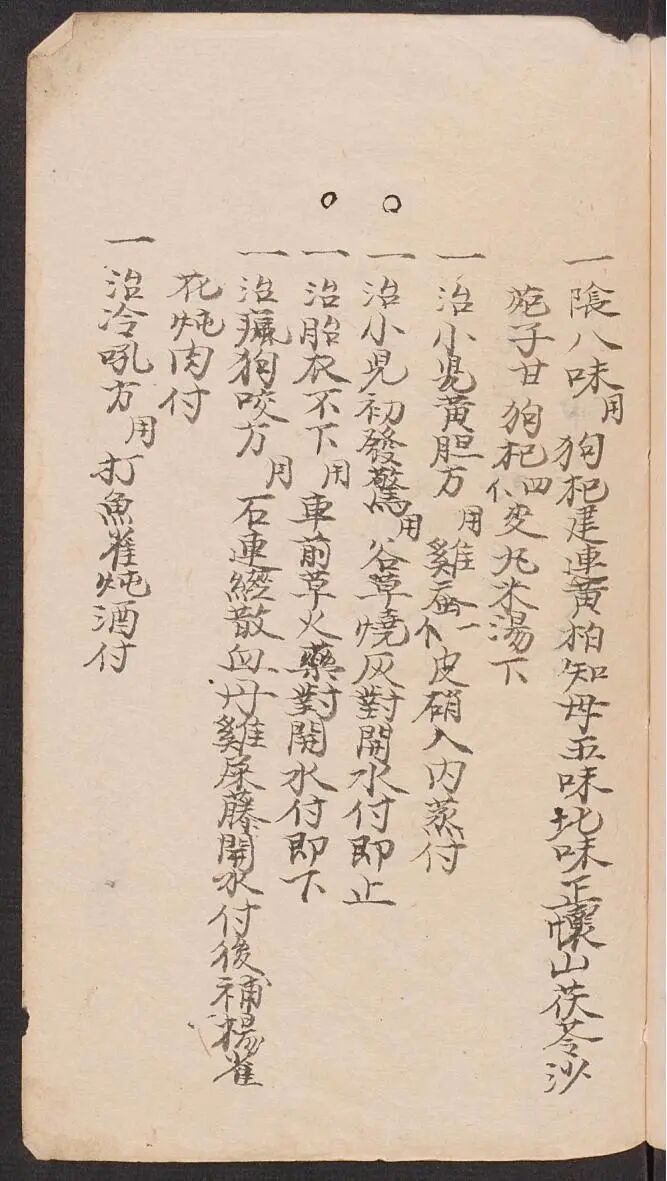 一陰八味用狗杞建連黄柏知母五味北味正懷山茯苓沙
苑子甘狗杞四个安丸米湯下
一治小児黄胆方用雞蛋一个皮硝入内蒸付
一治小児初發驚用谷草燒灰對開水付即止
一治胎衣不下用車前草火藥對開水付即下
一治瘋狗咬方用石連經散血丹雞屎藤開水付後補楊雀
花炖肉付
一治冷吼方用打魚雀炖酒付